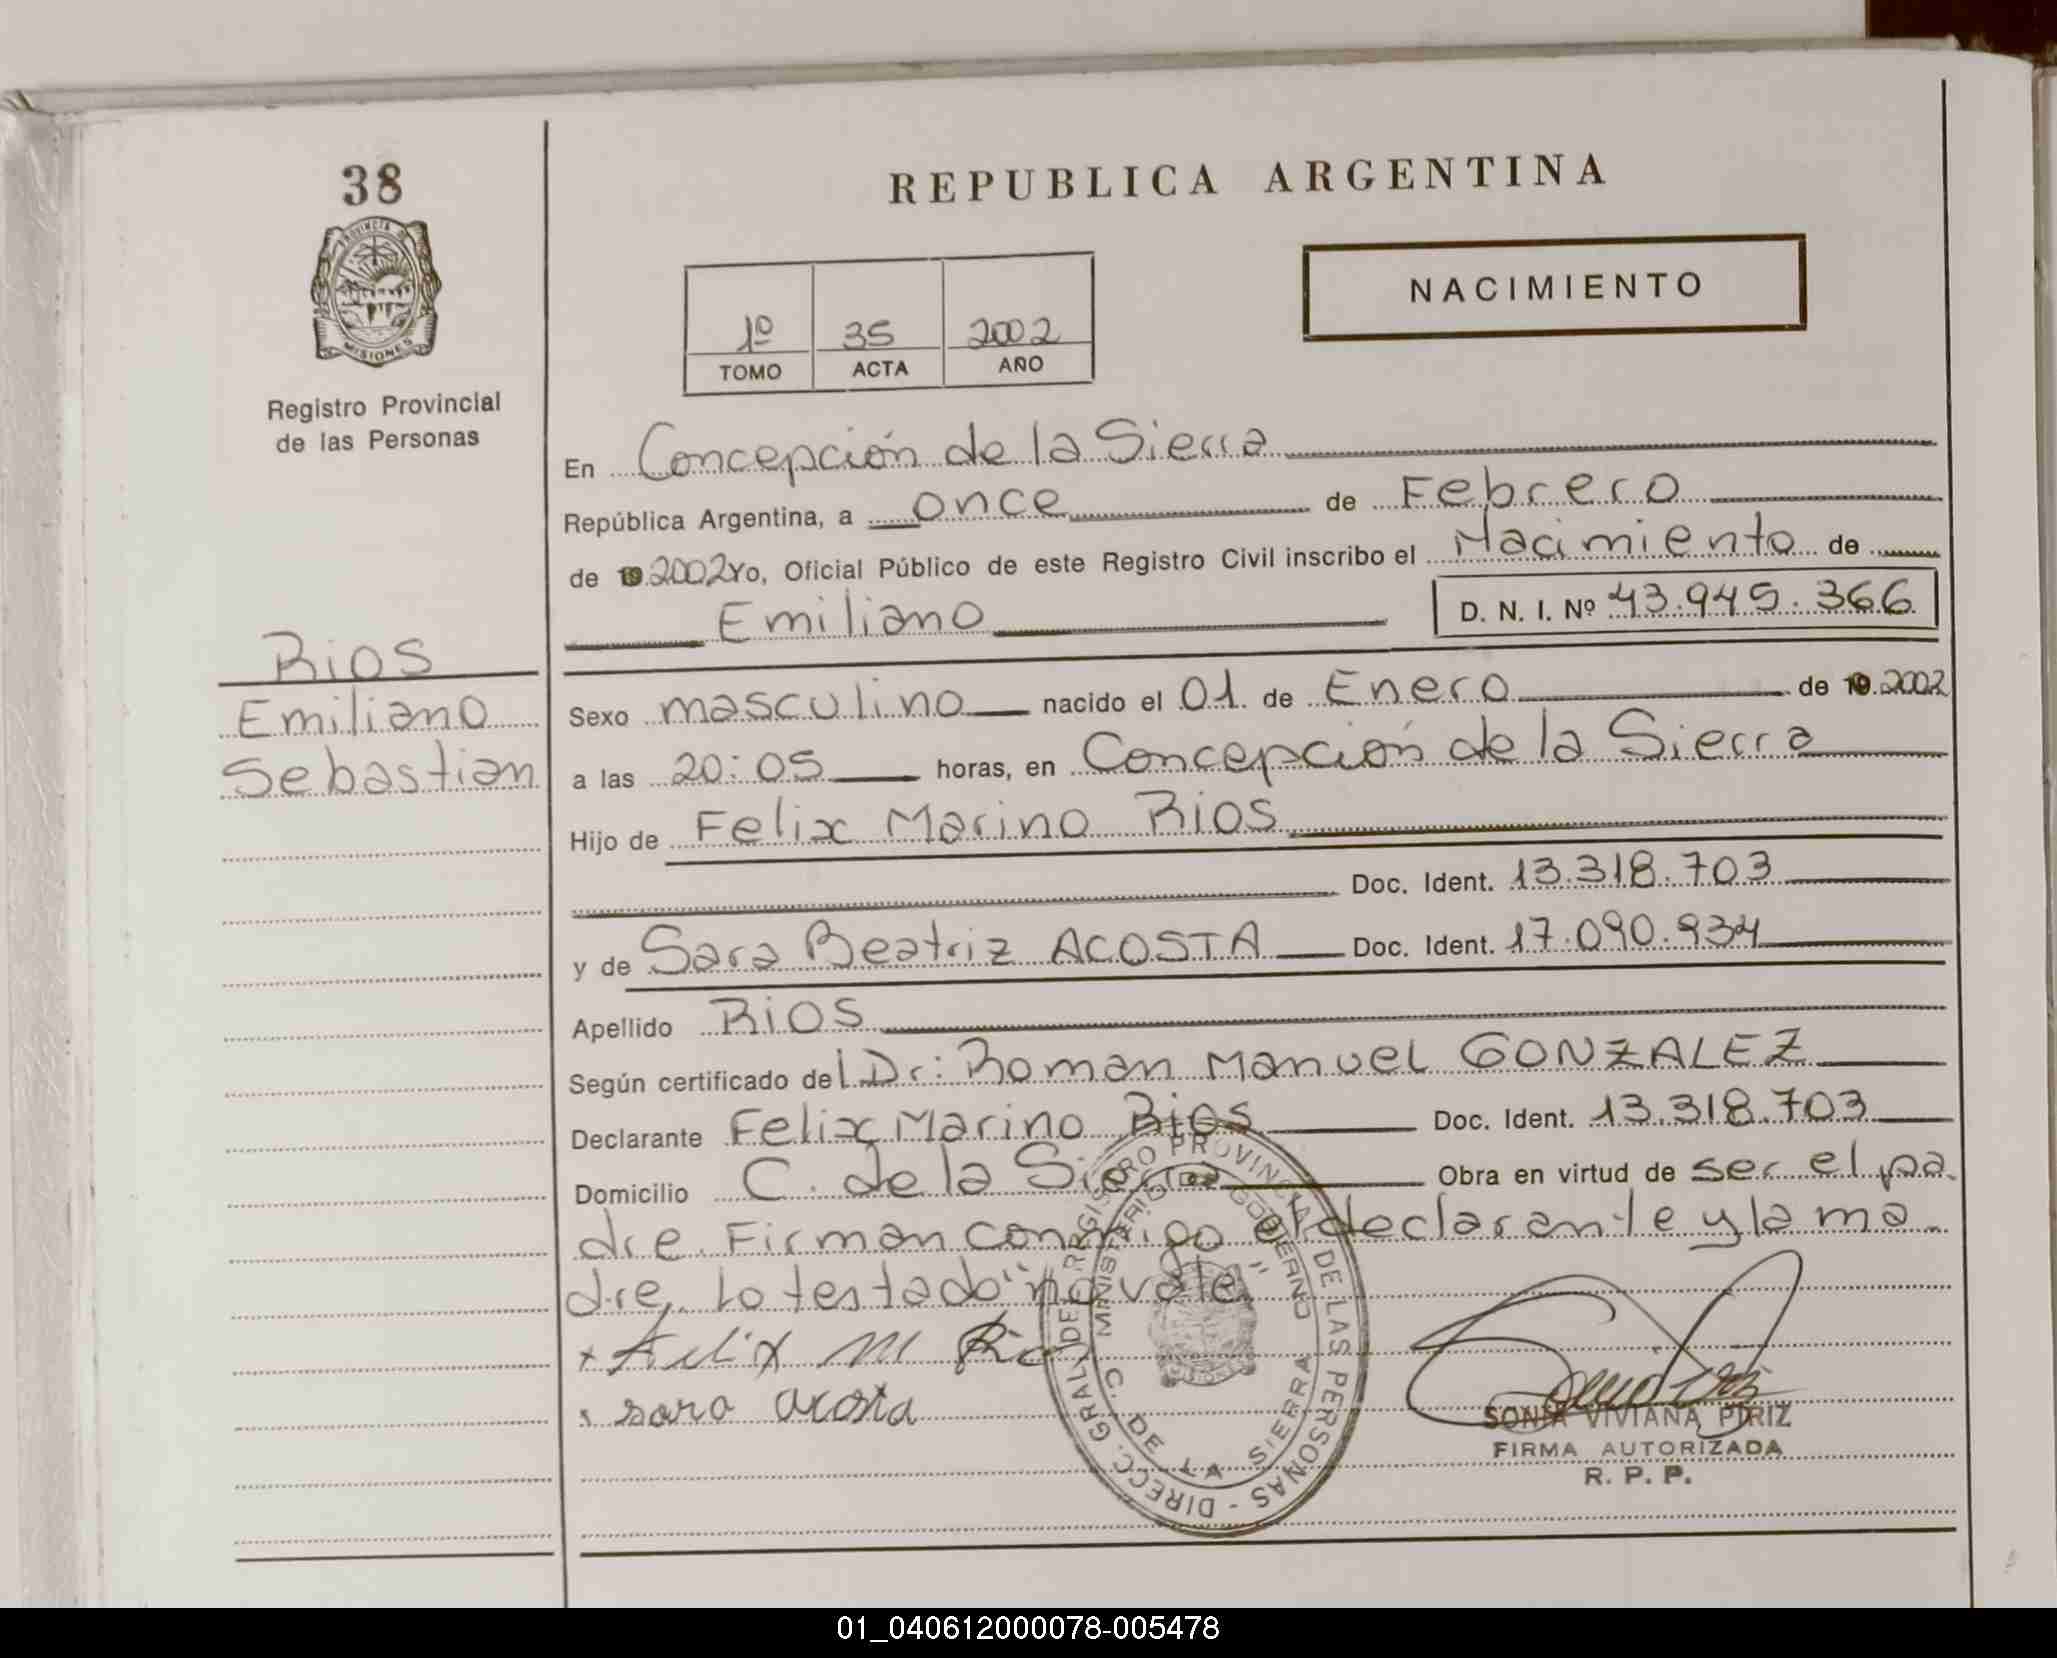 38
PROVINCIA DE
MISIONES
Registro Provincial
de las Personas
Rios
Emiliano
Sebastian
REPUBLICA ARGENTINA
NACIMIENTO
1º 35 2002
TOMO ACTA AÑO
En Concepción de la Sierra
República Argentina, a once de Febrero
de 19 2002 Yo, Oficial Público de este Registro Civil inscribo el Nacimiento de
Emiliano D. N. I. Nº 43.945.366
Sexo masculino nacido el 01 de Enero de 19 2002
a las 20:05 horas, en Concepción de la Sierra
Hijo de Felix Marino Rios
Doc. Ident. 13.318.703
y de Sara Beatriz ACOSTA Doc. Ident. 17.090.934
Apellido Rios
Según certificado del Dr: Roman Manuel GONZALEZ
Declarante Felix Marino Rios Doc. Ident. 13.318.703
Domicilio C. de la Sierra Obra en virtud de ser el pa-
dre. Firman conmigo el declarante y la ma-
dre, Lo testado "no vale"
x Felix M Rio
x sara acosta
DIRECC. GRAL. DEL REGISTRO PROVINCIAL DE LAS PERSONAS -
MINISTERIO DE GOBIERNO
MISIONES
C. DE LA SIERRA
SONIA VIVIANA PIRIZ
FIRMA AUTORIZADA
R. P. P.
01_040612000078-005478